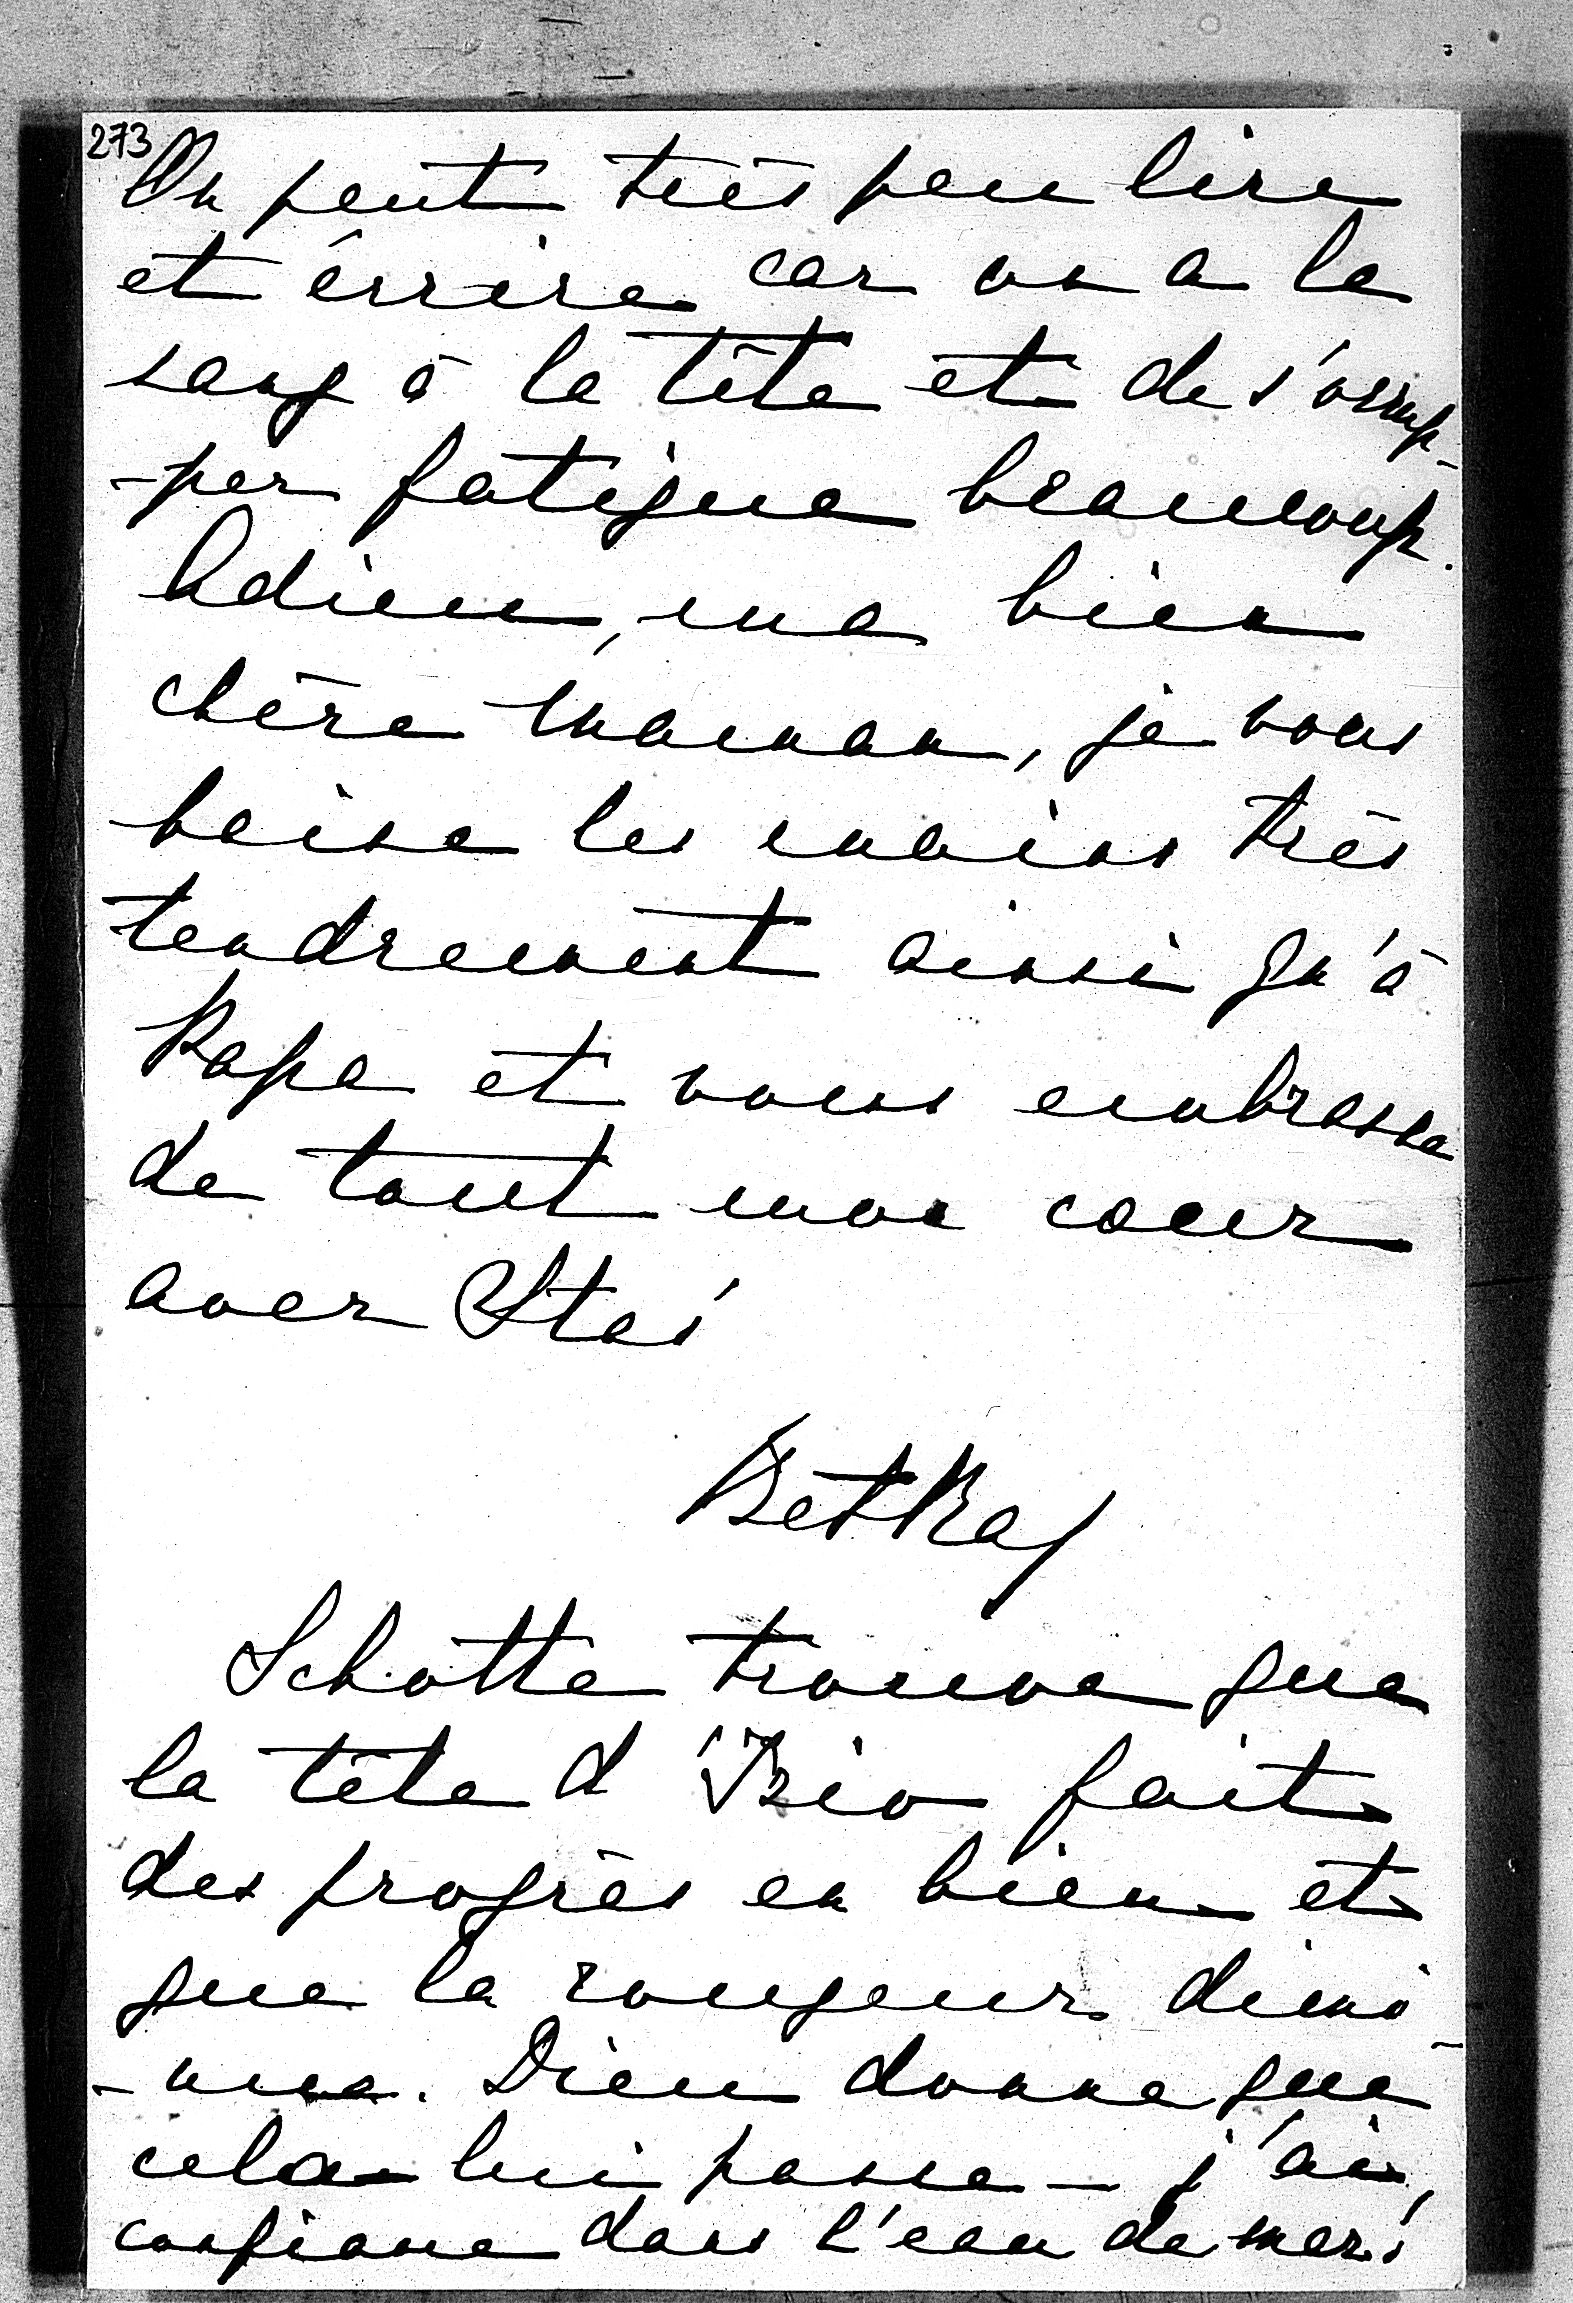 273
On peut très peu lire
et écrire car on a le
sang à la tête et de s'occup-
-per fatigue beaucoup.
Adieu, ma bien
chère Maman, je vous
baise les mains très
tendrement ainsi qu'à
Papa et vous embrasse
de tout mon cœur
avec Stas
BetRaj
Schotte trouve que
la tête d' fait
des progrès en bien et
que la rougeur dimi-
-nue. Dieu donne que
cela lui passe – j'ai
confiance dans l'eau de mer